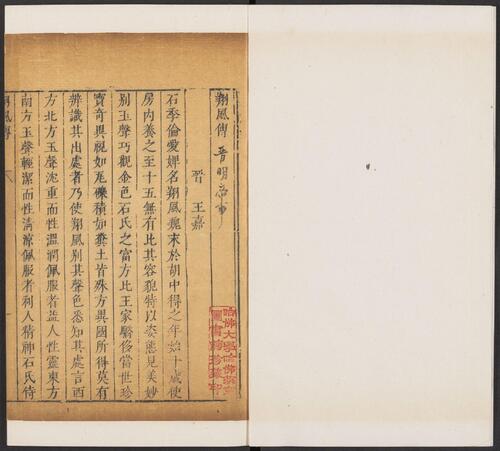 翔風傳
晉 王嘉
石季倫愛婢名翔風魏末於胡中得之年始十歲使
房内養之至十五無有比其容貌特以姿態見美妙
别玉聲巧觀金色石氏之富方比王家驕侈當世珍
寶奇異視如瓦礫積如糞土皆殊方異國所得莫有
辨識其出處者乃使翔風别其聲色悉知其處言西
方北方玉聲沈重而性溫潤佩服者益人性靈東方
南方玉聲輕潔而性清涼佩服者利人精神石氏侍
翔風傳